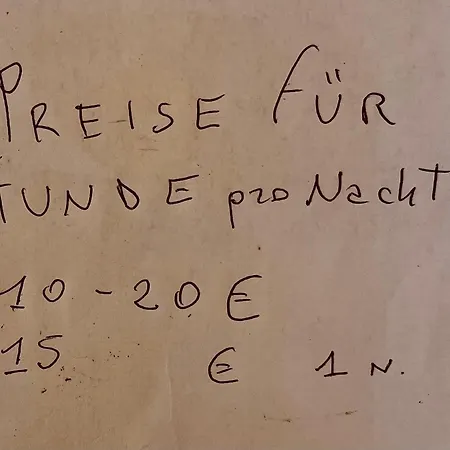 PREISE FÜR
TUNDE pro Nacht
10 - 20 €
15 € 1 N.